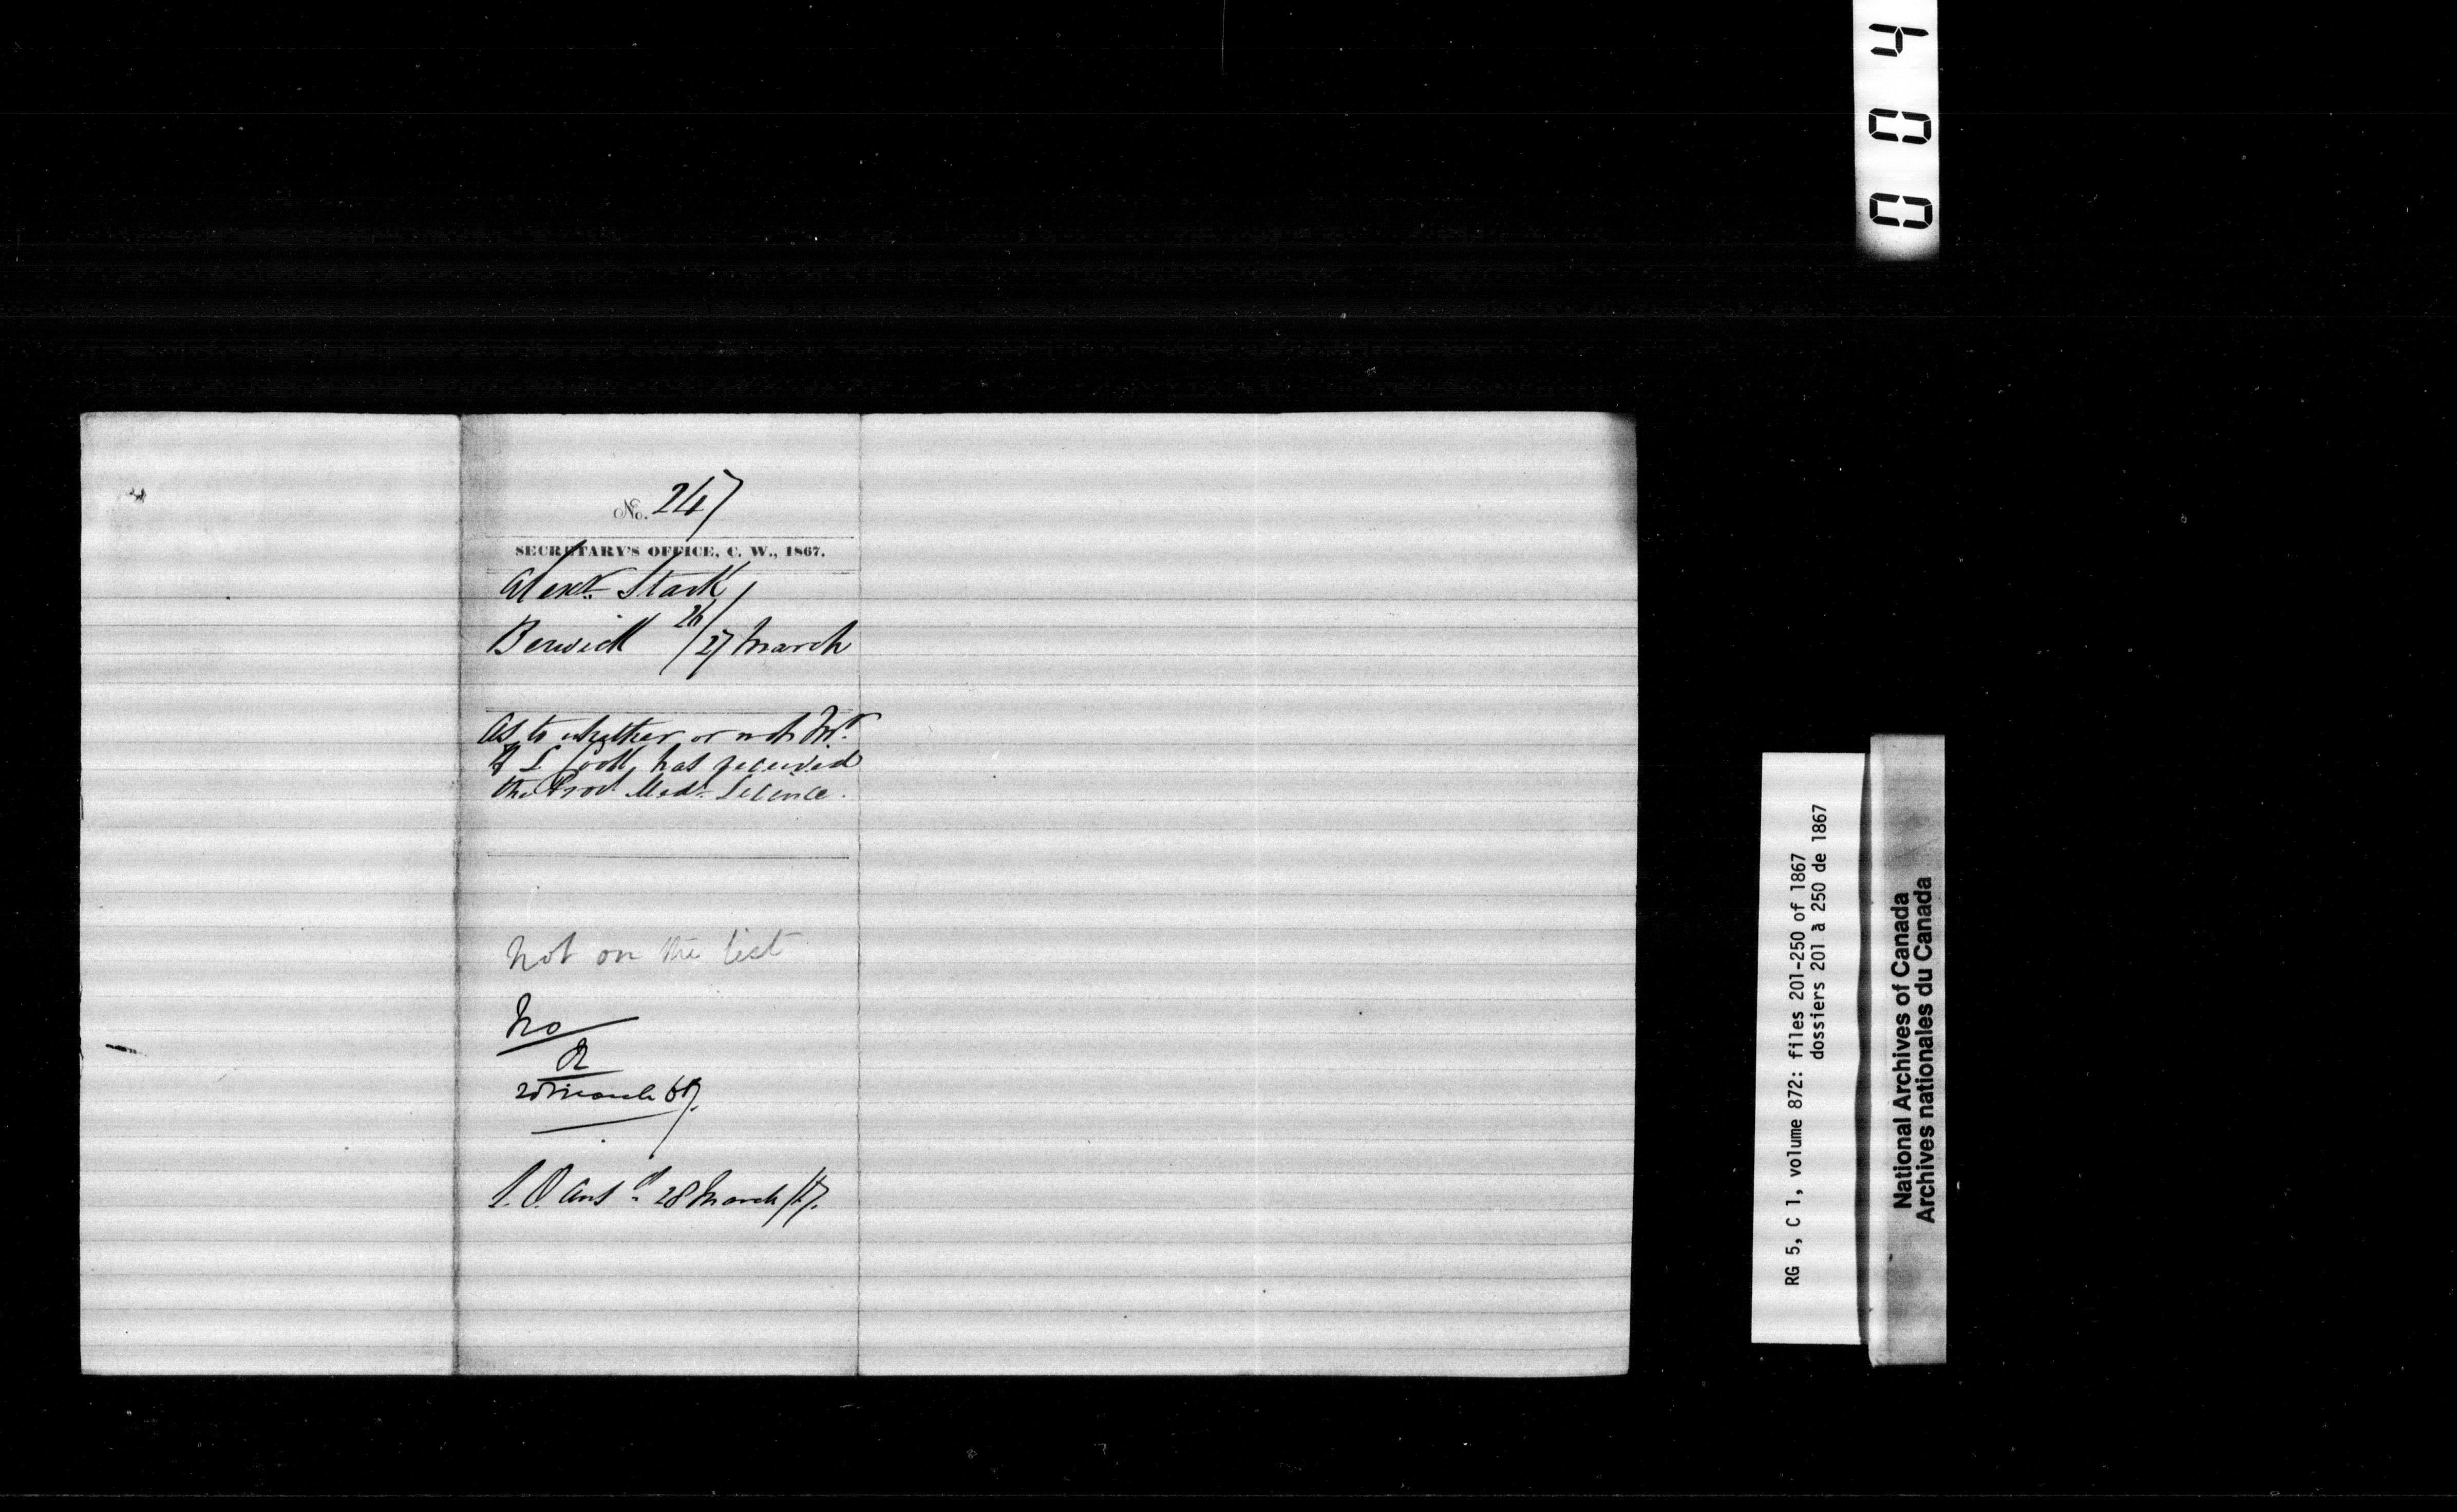 No. 247
SECRETARY'S OFFICE, C. W., 1867.
Alexr. Stark
Berwick 26/27 March
As to whether or not Mr.
H L Cook has received
the Prov. Medl. Licence.
Not on the list
No
28 March 67.
P. O. Ansd. 28 March /67.
004
RG 5, C 1, volume 872: files 201-250 of 1867
dossiers 201 à 250 de 1867
National Archives of Canada
Archives nationales du Canada